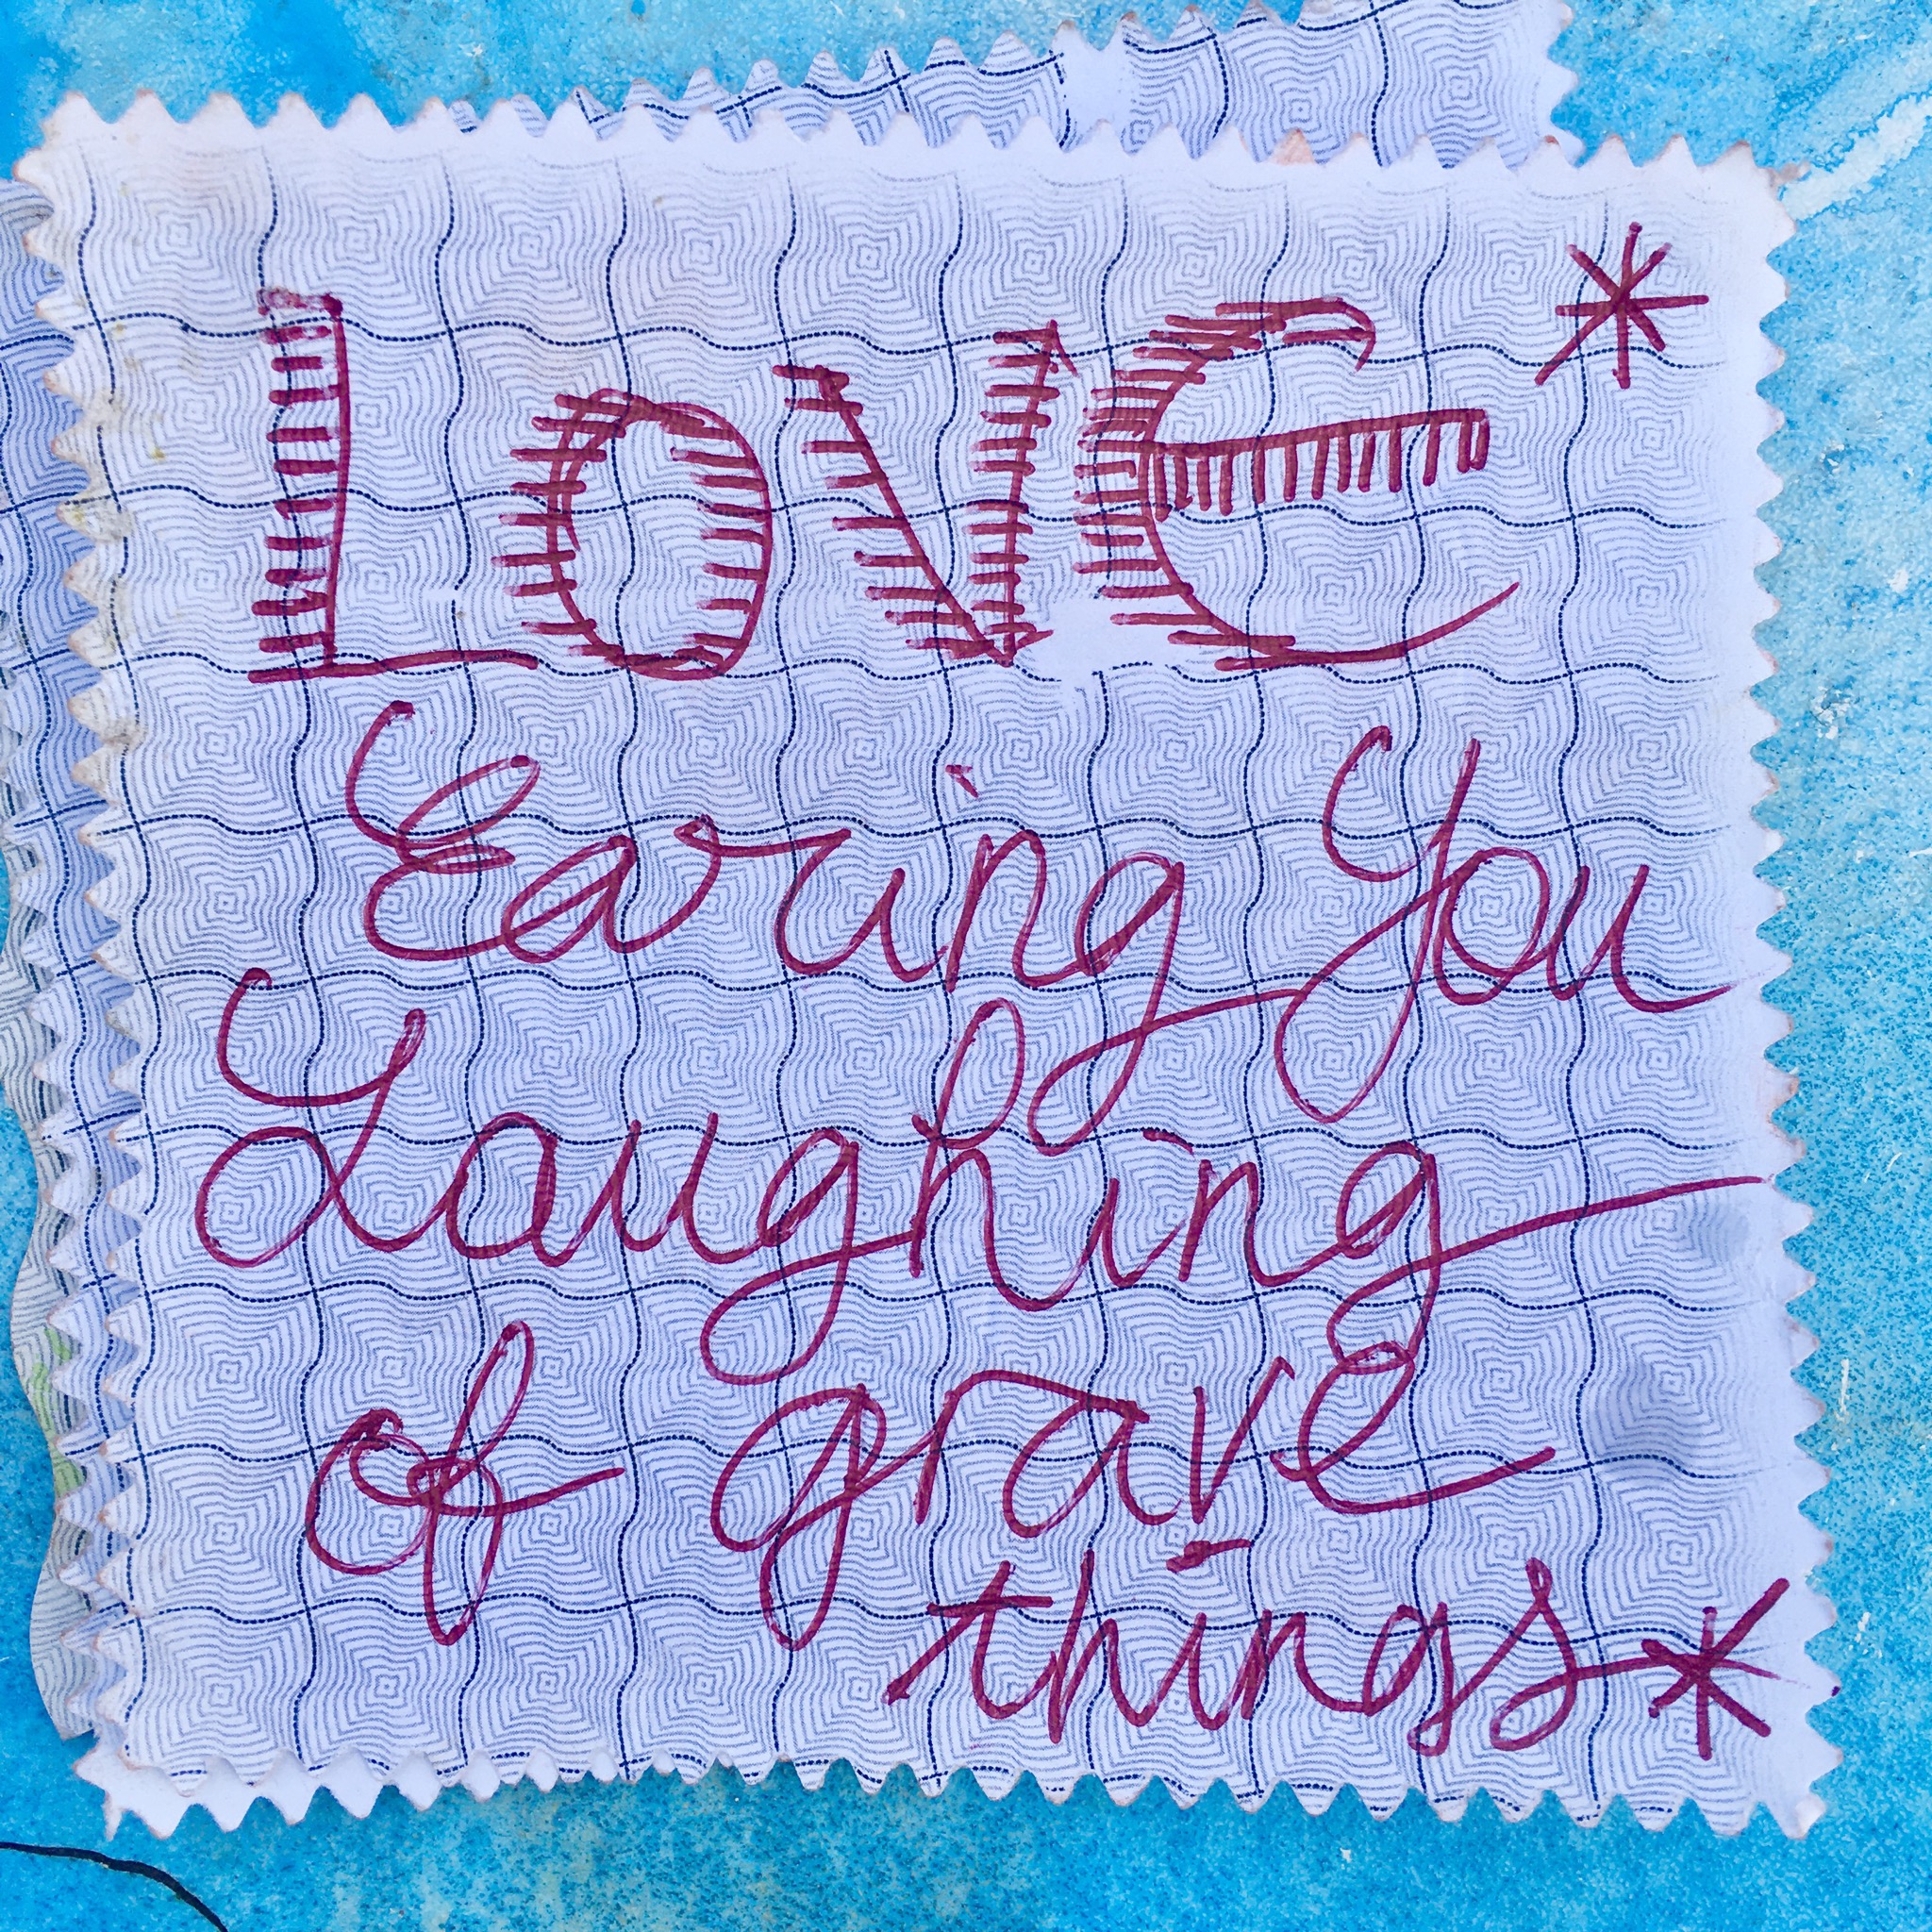 LOVE *
Earing You
Laughing
of grave
things *